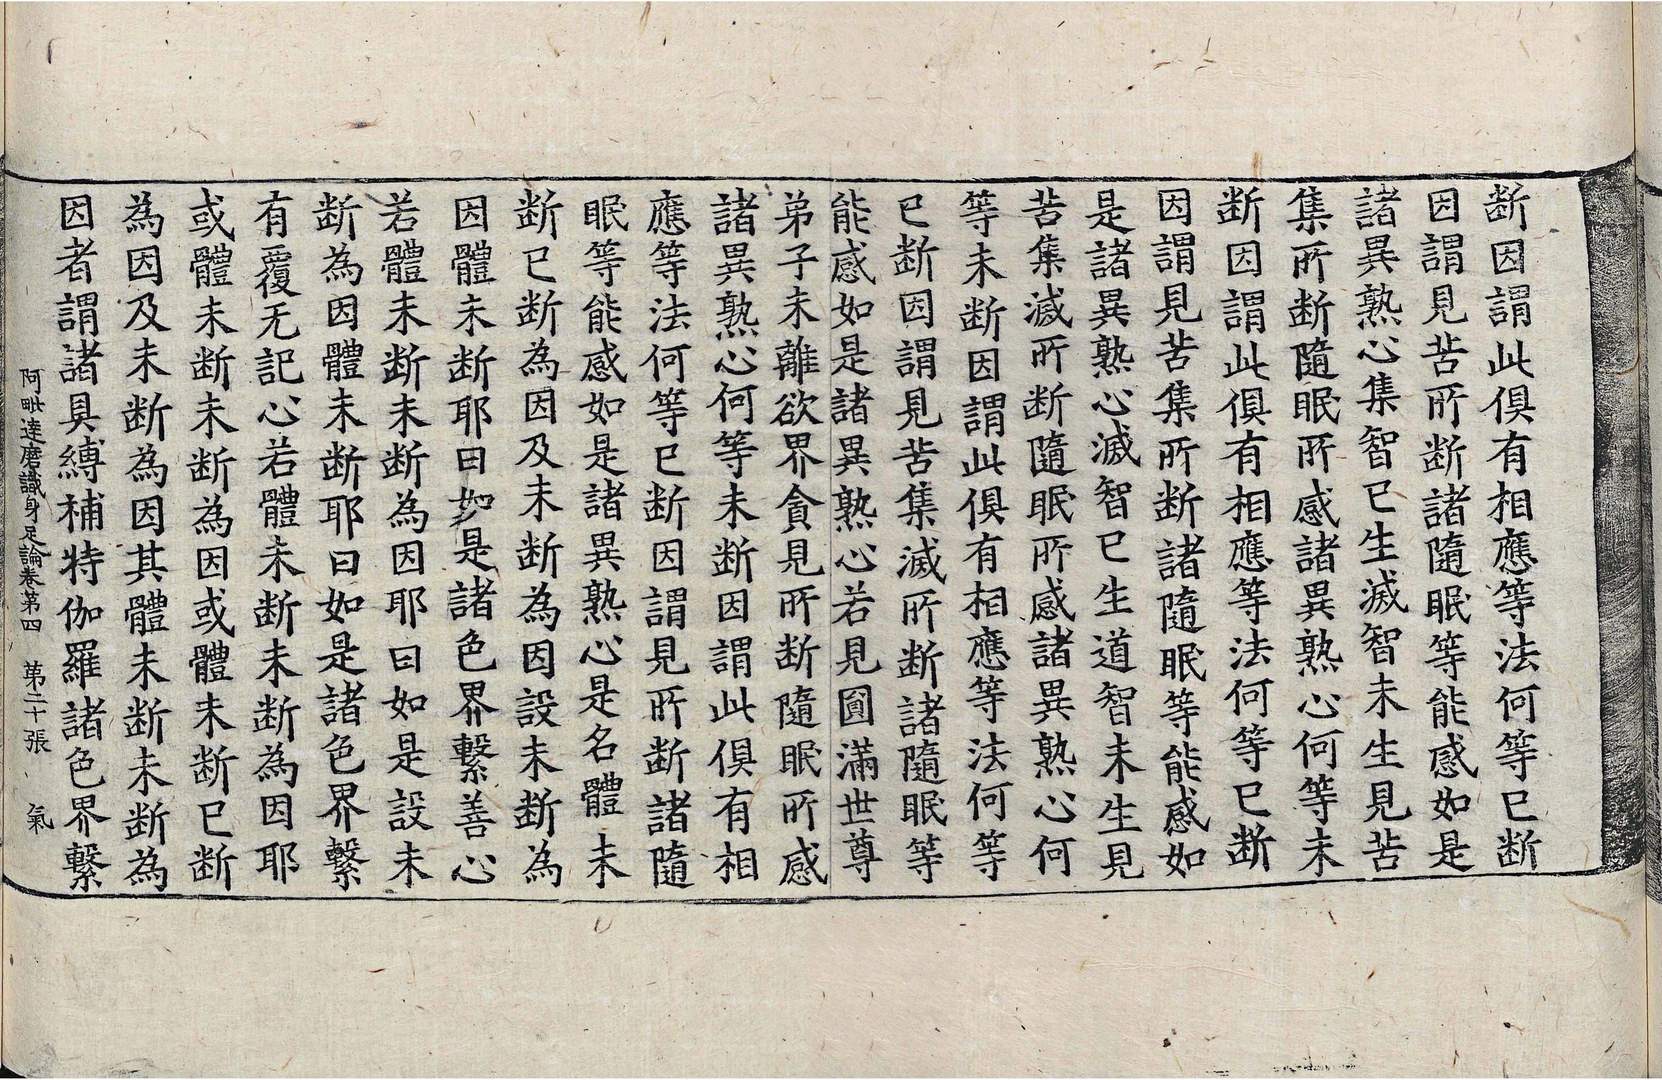 断因謂此俱有相應等法何等已断
因謂見苦所断諸隨眠等能感如是
諸異熟心集智已生滅智未生見苦
集所断隨眠所感諸異熟心何等未
断因謂此俱有相應等法何等已断
因謂見苦集所断諸隨眠等能感如
是諸異熟心滅智已生道智未生見
苦集滅所断隨眠所感諸異熟心何
等未断因謂此俱有相應等法何等
已断因謂見苦集滅所断諸隨眠等
能感如是諸異熟心若見圓滿世尊
弟子未離欲界貪見所断隨眠所感
諸異熟心何等未断因謂此俱有相
應等法何等已断因謂見所断諸隨
眠等能感如是諸異熟心是名體未
断已断為因及未断為因設未断為
因體未断耶曰如是諸色界繫善心
若體未断未断為因耶曰如是設未
断為因體未断耶曰如是諸色界繫
有覆无記心若體未断未断為因耶
或體未断未断為因或體未断已断
為因及未断為因其體未断未断為
因者謂諸具縛補特伽羅諸色界繫
阿毗達磨識身足論卷第四 第二十張 氣